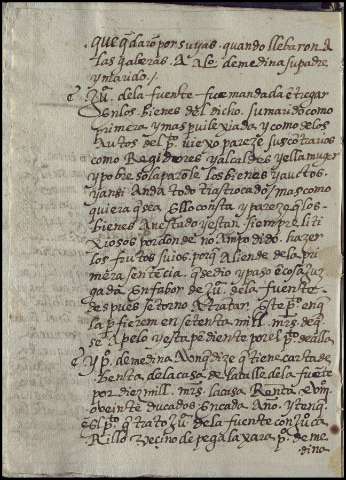 que qdarõ por suyas. quando llebaron A
las galeras. A Alº de medina su padre
y marido /.
de la fuente - fue mandada êtregar
En los bienes del dicho. su marido como
primera y mas previlexiada y como de los
Autos del pº. viexo pareze sus cõtrarios
como Regidores y alcaldes y ella muger
y pobre sola parole los bienes y autos.
y ansi Anda todo trastrocado / mas como
quiera q sea Ello cõsta y pareze q los
bienes An estado y estan siempre liti
xiosos por donde no An podido. hazer
los frutos suios. porq Aliende de la pri
mera sentēcia. q se dio y paso ē cosa juz
gada En fabor de de la fuente.
despues se torno A tratar. Este pº. en q
la pfierem en setenta mill. mrs. de q
se Apelo y esta pēdiente por el pº. de alla
Y pº. de medina Aunq dize q tiene carta de
benta de la casa de la calle de la fuēte
por diez mill. mrs. la casa Renta
o veinte ducados. En cada Año. y ten q
El pto q trato de la fuente con juº ca
Rillo vezino de pegalaxara pº. de me
dina